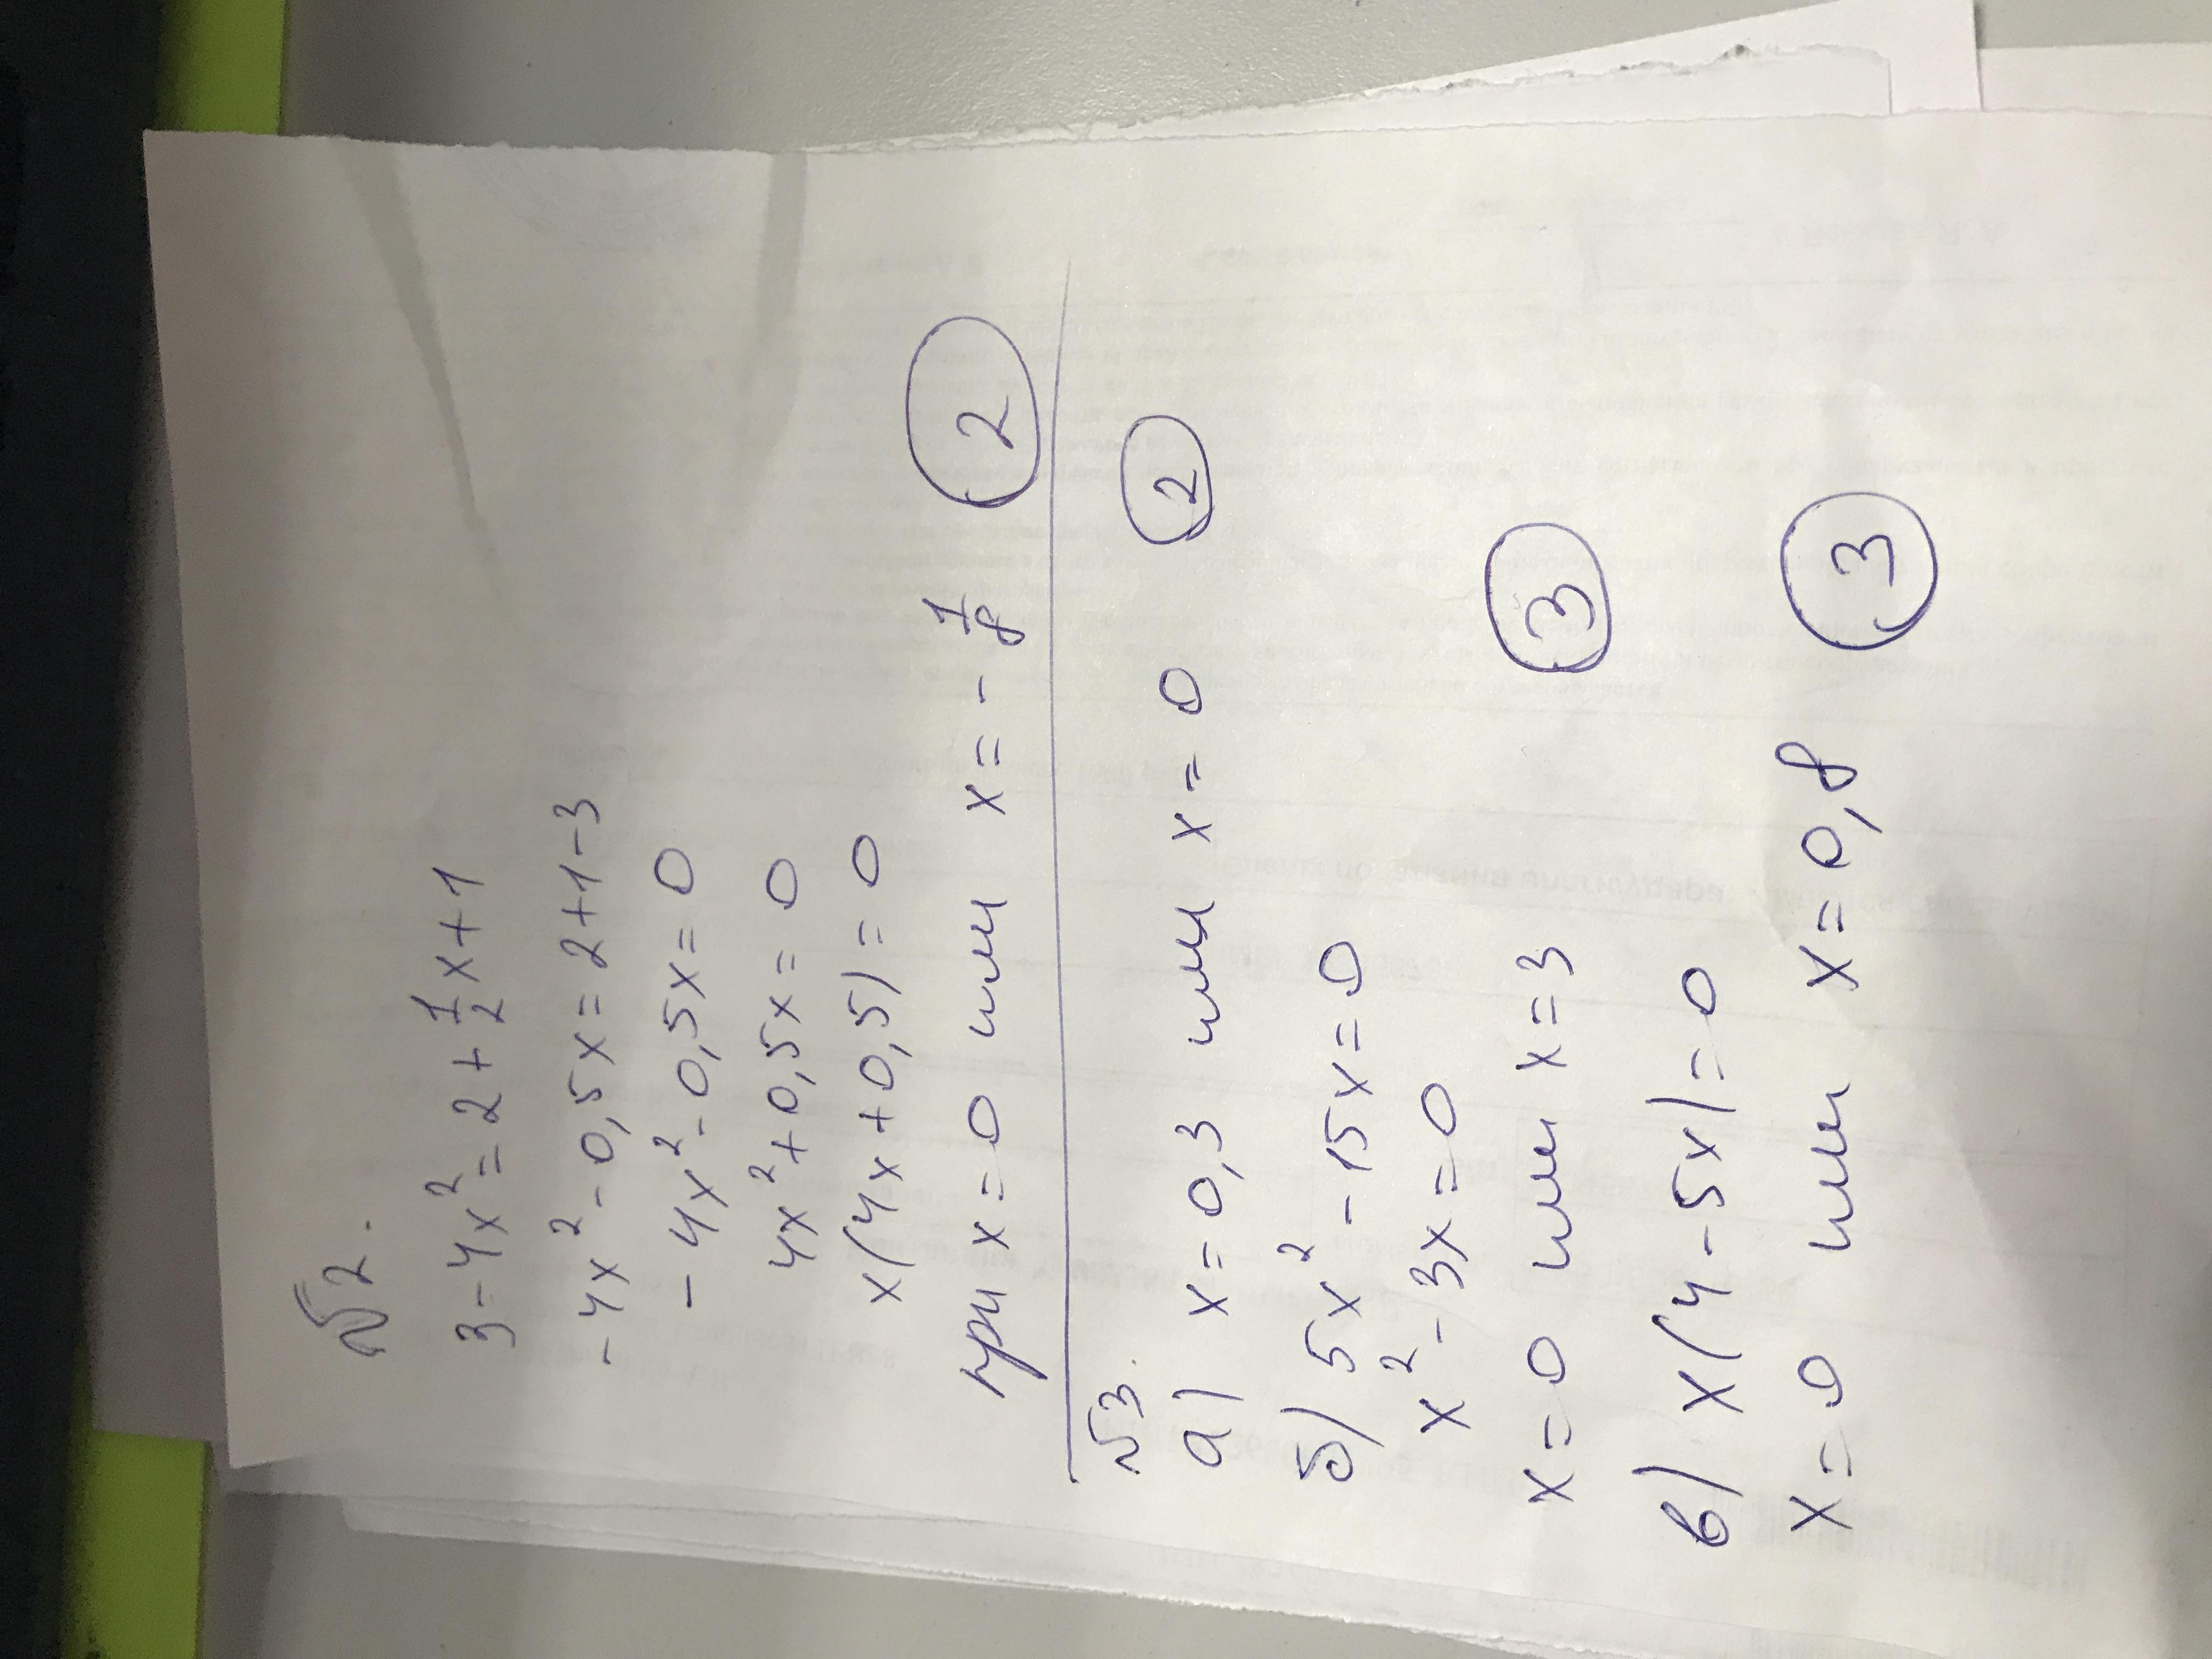 №2.
3-4x²=2+½x+1
-4x²-0,5x=2+1-3
-4x²-0,5x=0
4x²+0,5x=0
x(4x+0,5)=0
при x=0 или x=-1/8 2
№3.
а) x=0,3 или x=0 2
б) 5x²-15x=0
x²-3x=0
x=0 или x=3 3
в) x(4-5x)=0
x=0 или x=0,8 3